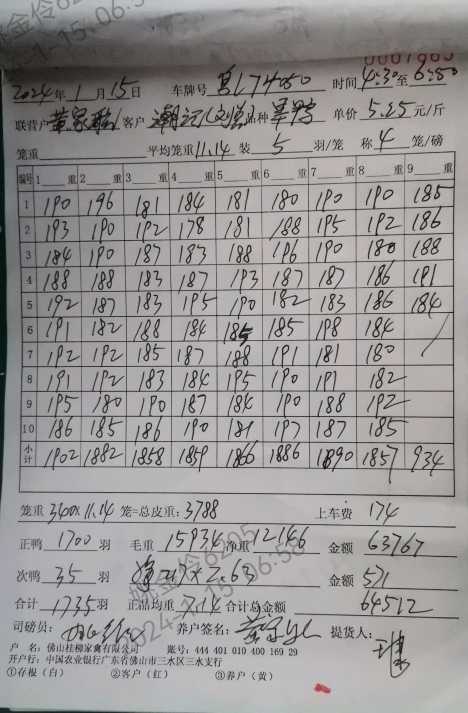 0001065
2024年1月15日 车牌号 74050 时间4:30至6:50
联营户 客户 潮 品种 单价5.25元/斤
笼重 平均笼重11.14装 5 羽/笼 称 4 笼/磅
编号 1 重 2 重 3 重 4 重 5 重 6 重 7 重 8 重 9 重
1 190 196 181 184 181 180 190 190 185
2 193 190 192 178 181 188 195 192 186
3 184 190 187 183 188 196 190 180 188
4 188 188 183 187 193 187 187 186 191
5 192 187 183 195 190 182 183 186 184
6 191 182 188 184 185 185 198 184
7 192 192 185 187 188 191 181 180
8 191 192 183 184 195 190 191 182
9 195 180 190 187 184 190 188 192
10 186 185 186 190 181 197 187 185
小计 1902 1882 1858 1859 1866 1886 1890 1857 934
笼重 340×11.14 笼=总皮重:3788 上车费 174
正鸭 1700 羽 毛重 15934 净重 12146 金额 63767
次鸭 35 羽 × 2.63 金额 571
合计 1735 羽 正品均重 7.14 合计总金额 64512
司磅员: 养户签名: 提货人:
户 名:佛山桂柳家禽有限公司 账号:444 401 010 400 169 29
开户行:中国农业银行广东省佛山市三水区三水支行
①存根(白) ②客户(红) ③养户(黄)